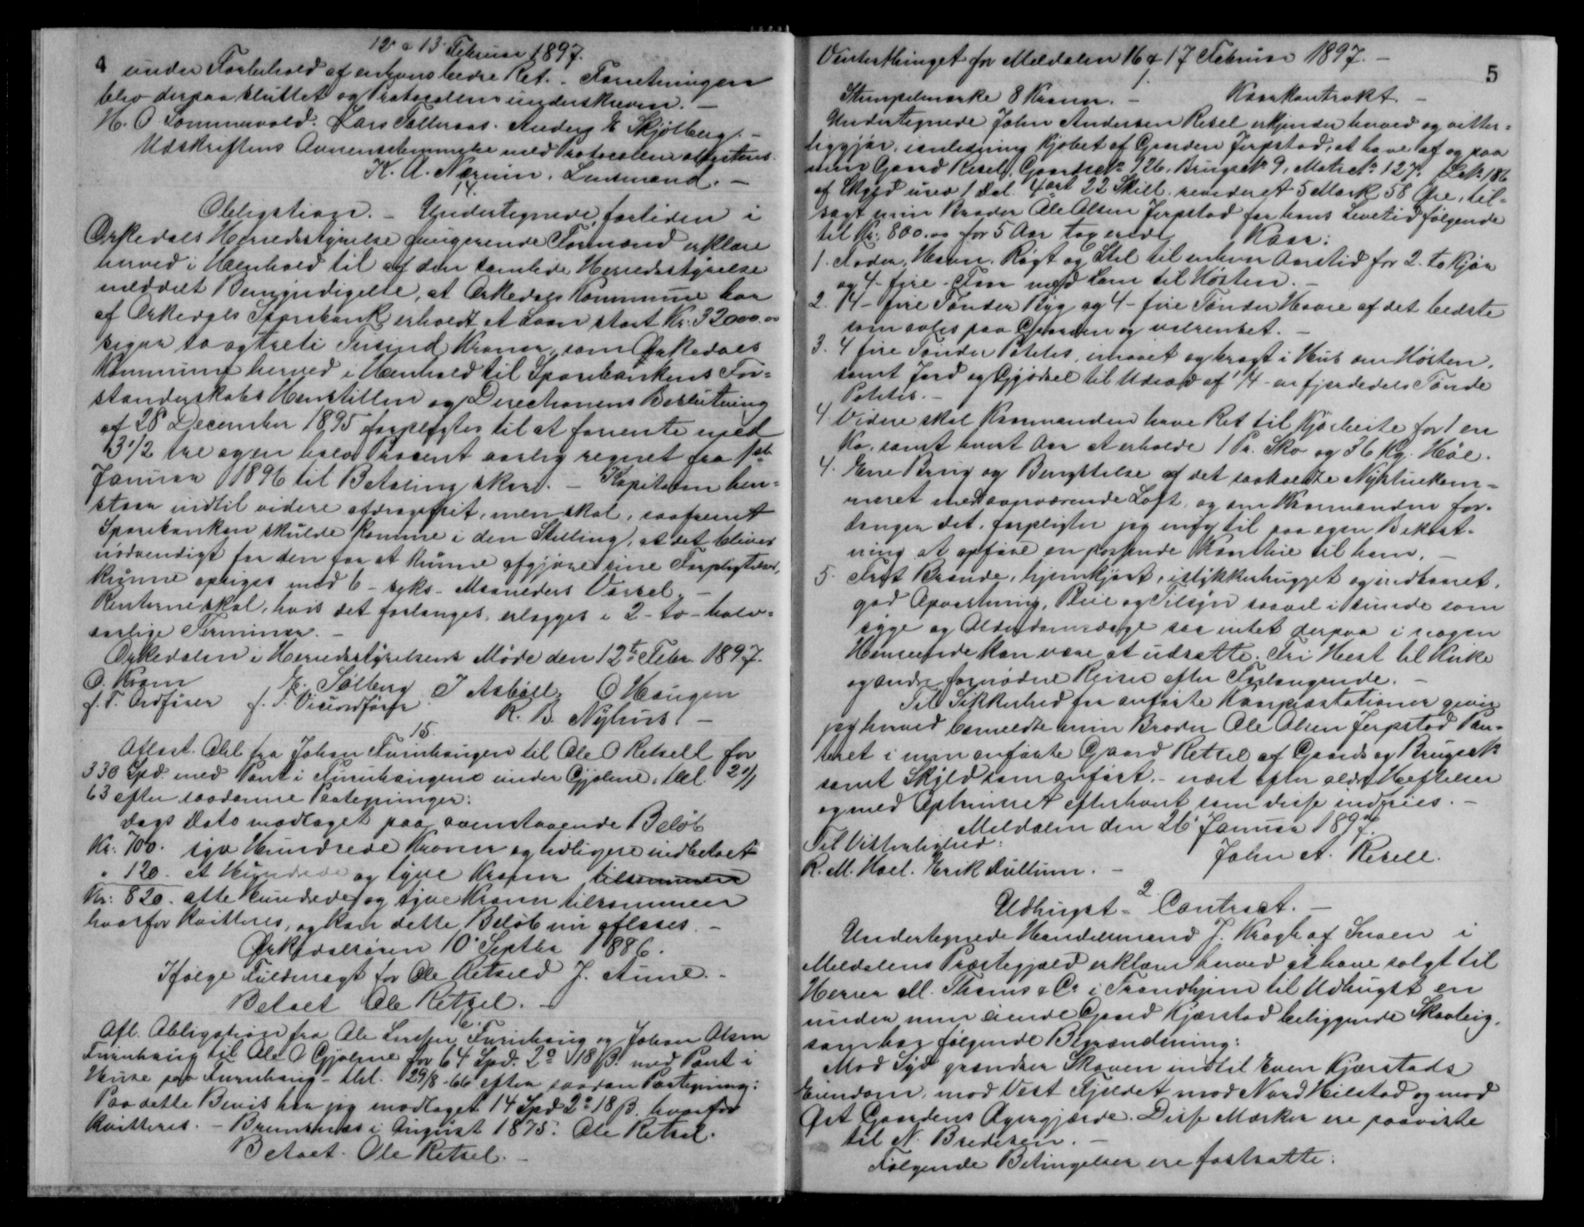 12 & 13 Februar 1897.
4
under Forbehold af enhvers bedre Ret. - Forretningen
blev derpaa sluttet og Protocollen underskreven. -
H. O. Sommervold. Lars Solleraas. Anders E Skjølberg. -
Udskriftens Overensstemmelse med Protocollen attesteres.
K. A. Nærvin, Lensmand. -
14.
Obligation. - Undertegnede fortiden i
Orkedals Herredsstyrelse fungerende Formænd erklære
herved i Henhold til af den samlede Herredsstyrelse
meddelt Bemyndigelse, at Orkedals Kommune har
af Orkedals Sparebank erholdt et Laan stort Kr. 32000.00
siger to og treti Tusind Kroner, som Orkedals
Kommune herved i Henhold til Sparebankens For=
standerskabs Henstillen og Directionens Beslutning
af 28 December 1895 forpligtes til at forrente med
3 1/2 tre og en halv Procent aarlig regnet fra 1ste
Januar 1896 til Betaling skeer. - Kapitalen hen=
staar indtil videre afdragsfrit, men skal, saafremt
Sparebanken skulde komme i den Stilling, at det bliver
nødvendigt for den for at kunne afgjøre sine Forpligtelser,
kunne opsiges med 6 - seks - Maaneders Varsel. -
Renterne skal, hvis det forlanges, erlægges i 2 - to - halv=
aarlige Terminer. -
Orkedalen i Herredsstyrelsens Møde den 12te Febr. 1897.
O. Kvam E. Solberg J Asbøll, O Haugen
f. T. Ordfører f. T. Viceordfører K. B. Nyhus. -
15.
Aflæst. Obl. fra Johan Furuhaugen til Ole O Retsell for
330 Spd. med Pant i Furuhaugene under Gjølme, thl. 20/1
63 efter saadanne Paategninger:
Dags Dato modtaget paa ovenstaaende Beløb
Kr. 700. syv Hundrede Kroner og tidligere indbetalt
" 120. et Hundrede og tyve Kroner tilsammen
Kr. 820. otte hundrede og tyve Kroner tilsammen
hvorfor kvitteres, og kan dette Beløb nu aflæses. -
Orkedalsøren 10 Septbr 1886.
Ifølge Fuldmagt for Ole Retsell J. Aune. -
Betalt Ole Retzel. -
Afl. Obligation fra Ole Furuhaug og Johan Olsen
Furuhaug til Ole O Gjølme for 64 Spd. 2 o 18 ß. med Pant i
Huse paa Furuhaug - thl. 29/8-66 efter saadan Paategning:
Paa dette Bevis har jeg modtaget 14 Spd 2 o 18 ß. hvorfor
kvitteres. - i August 1875. Ole Retsel.
Betalt. Ole Retsel. -
Vinterthinget for Meldalen 16 & 17 Februar 1897. -
5
1.
Stempelmærke 8 Kroner. - Kaarkontrakt. -
Undertegnede John Andersen Resel erkjender herved og vitter=
liggjør, i anledning Kjøbet af Gaarden Jerpstad, at have af og paa
min Gaard Resel, Gaards No 126, Brugs No 9, Matr. No 127, Løb 186
af Skyld urev 1 Dal 4 ort 22 Skill. revideret 5 Mark 58 Øre, til=
sagt min Broder Ole Olsen Jerpstad for hans Levetid følgende
til Kr. 800.00 for 5 Aar taxerede Kaar:
1. Foder, Havn, Røgt og Stel til enhver Aarstid for 2 - to Kjør
og 4 - fire - Faar med Lam til Høsten. -
2. 14 fire Tønder Byg og 4 - fire Tønder Havre af det bedste
som avles paa Gaarden og velrenset. -
3. 4 fire Tønder Potetes, indhøstet og bragt i Hus om Høsten.
samt Jord og Gjødsel til Udsæd af 1/4 - en fjerdedels Tønde
Potetes. -
4 Videre skal Kaarmanden have Ret til Kjøbeite for 1 en
Ko, samt hvert Aar at erholde 1 Pr. Sko og 36 Kg. Høe.
4. Ene Brug og Benyttelse af det saakaldte Nystuekam=
meret med ovenværende Loft, og om Kaarmanden for-
langer det, forpligter jeg mig til paa egen Bekost-
ning at opføre en passende Kaarstue til ham. -
5. Frit Brænde, hjemkjørt, istykkerhugget og indbaaret,
god Opvartning, Pleie og Tilsyn saavel i sunde som
syge og Alderdomsdage saa intet derpaa i nogen
Henseende kan være at udsætte. Fri Hest til Kirke
og andre fornødne Reiser efter Forlangende. -
Til Sikkerhed for anførte Kaarpræstationer giver
jeg herved bemeldte min Broder Ole Olsen Jerpstad Pan-
teret i min anførte Gaard Retsel af Gaards og Brugs No
samt Skyld som anført. - næst efter ældre Heftelser
og med Oprinsret efterhaant som disse indfries. -
Meldalen den 26 Januar 1897.
Til Vitterlighed: John A. Resell.
R. M. Hoel. Erik Kullum. -
2.
Udhugst - Contract. -
Undertegnede Handelsmand J. Krogh af Snoen i
Meldalens Præstegjæld erklærer herved at have solgt til
Herrer M. Thams & Co i Trondhjem til Udhugst en
under min eiende Gaard Kjærstad beliggende Skovteig,
som har følgende Begrændsning:
Mod Syd grændser Skoven indtil Even Kjærstads
Eiendom, mod Vest Fjeldet, mod Nord Hilstad og mod
Øst Gaardens Agergjærde. Disse Mærker ere paaviste
til N. Bredesen. -
Følgende Betingelser ere fastsatte: